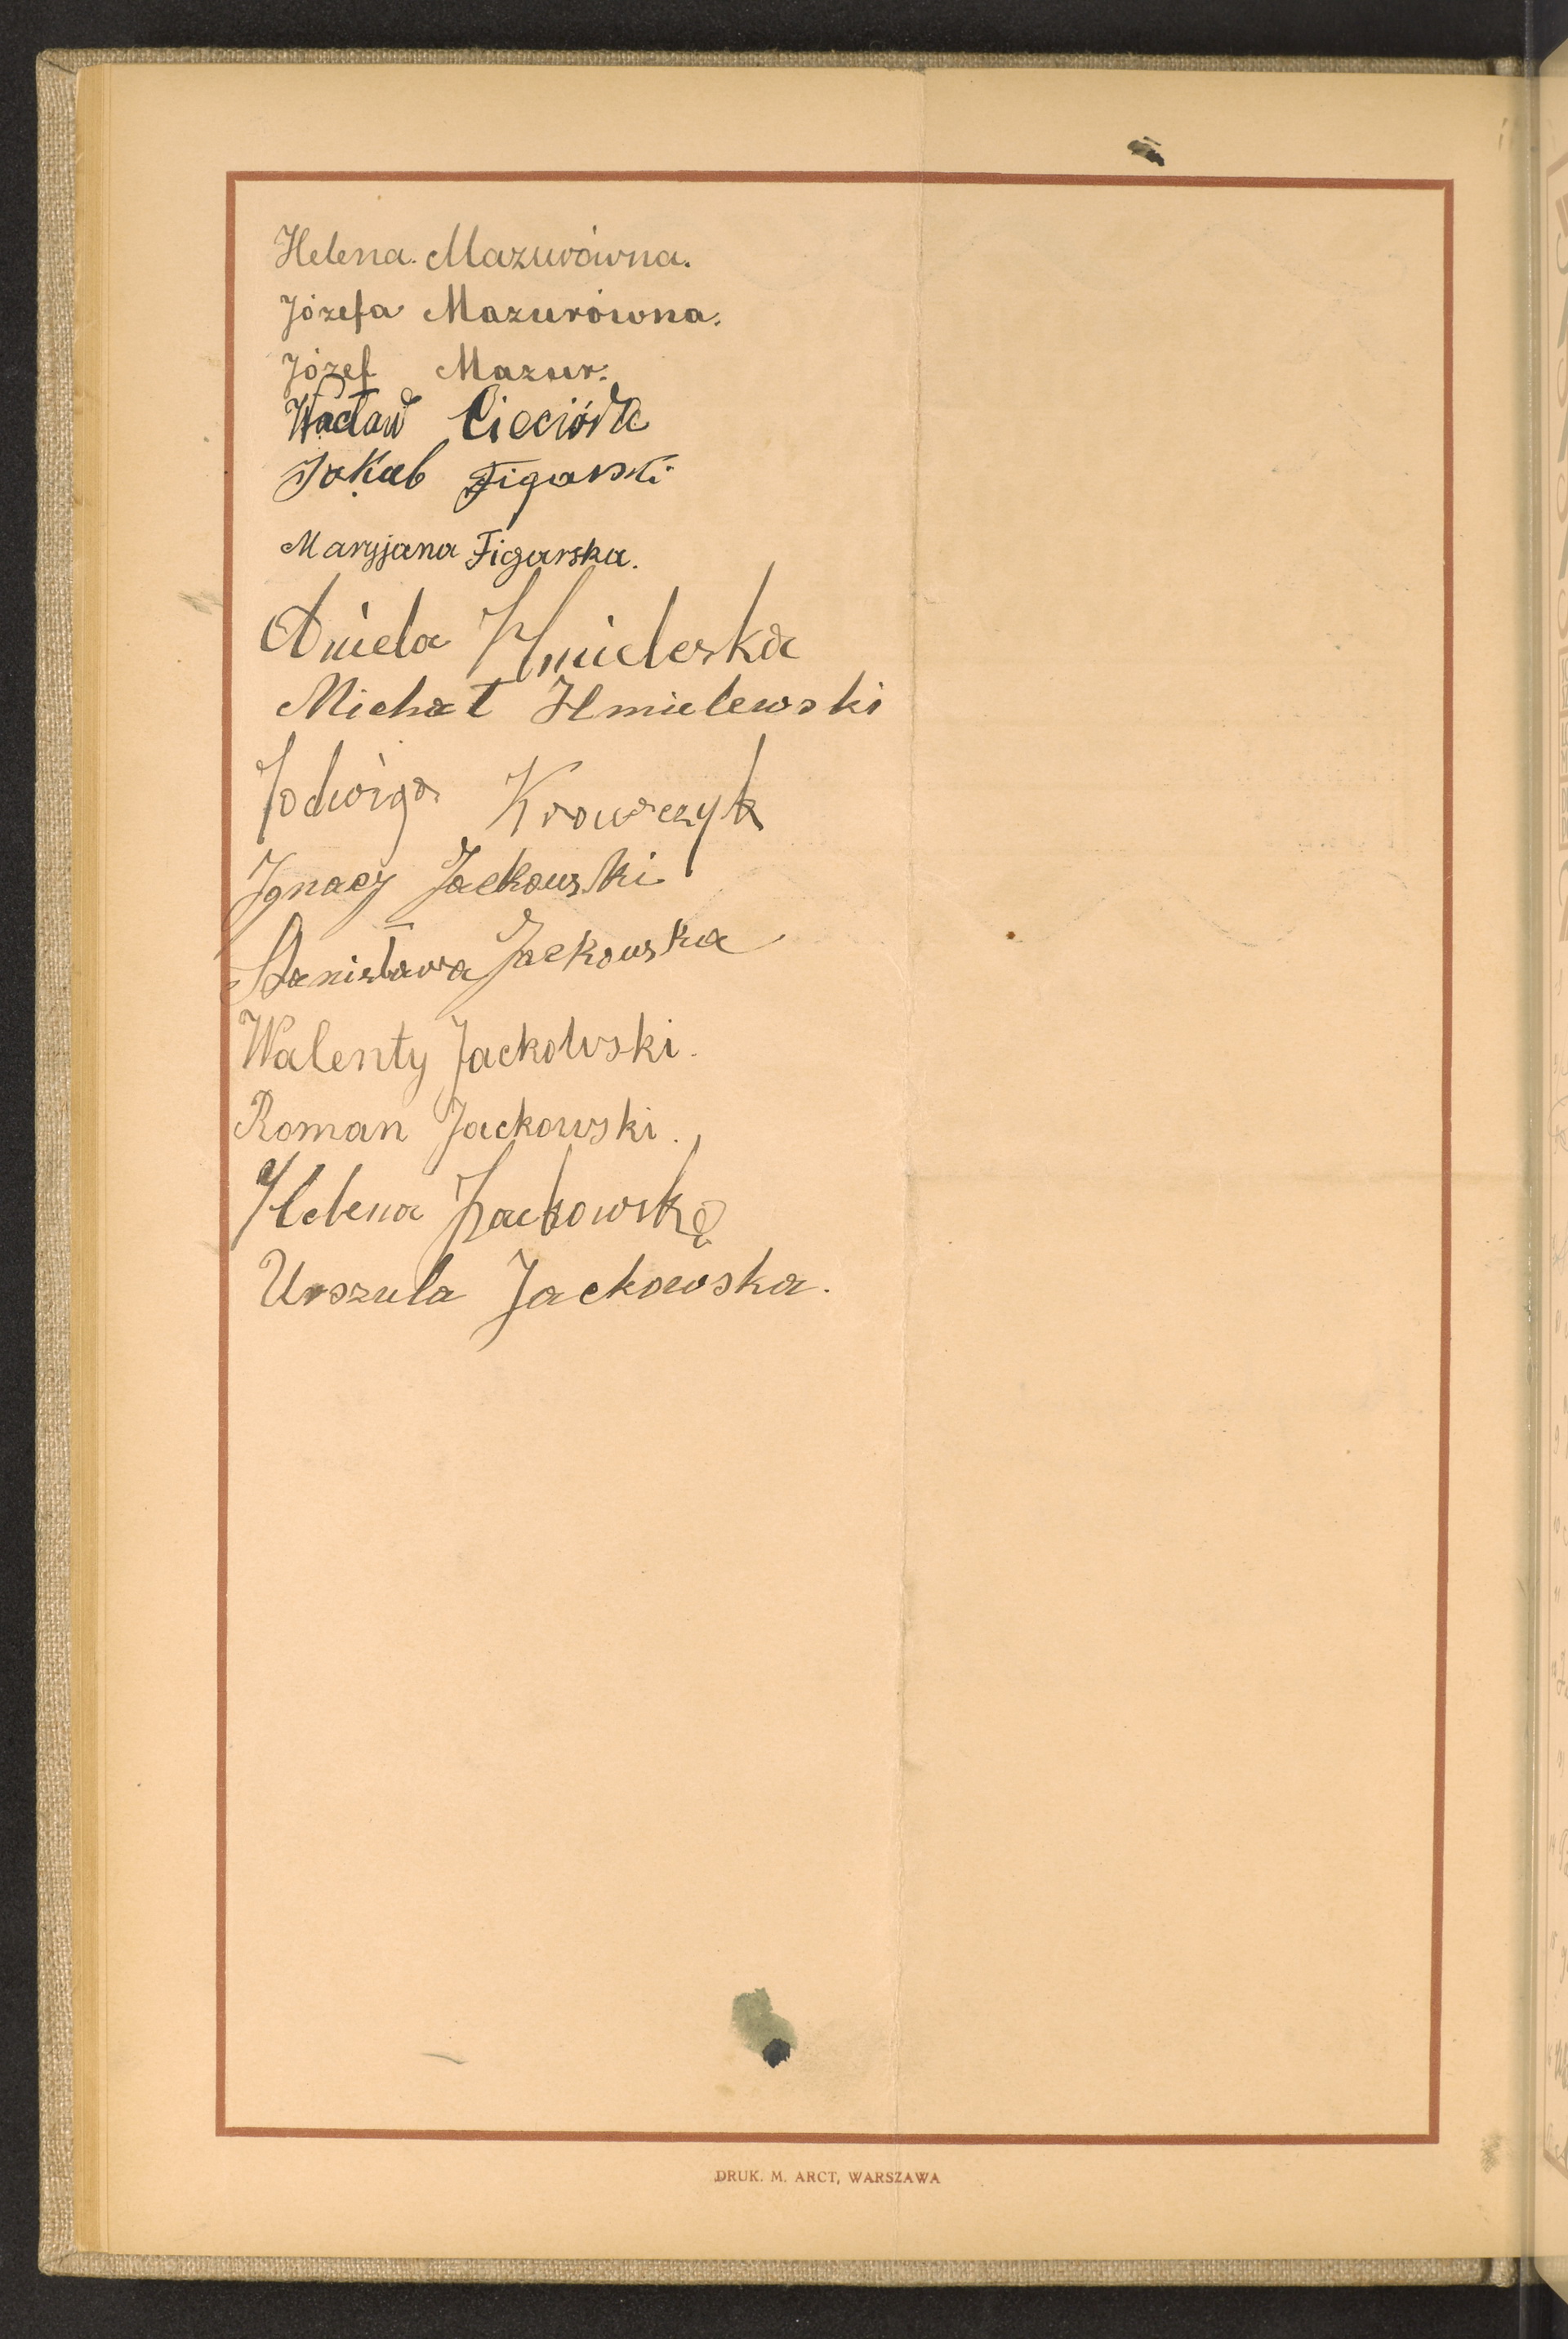 Helena Mazurówna.
Józefa Mazurówna.
Józef Mazur.
Wacław Ciecióra
Jakub Figarski
Maryjana Figarska.
Aniela Hmieleska
Michał Hmielewski
Jadwiga Krawczyk
Ignacy Jackowski
Stanisława Jackowska
Walenty Jackowski.
Roman Jackowski.
Helena Jackowska
Urszula Jackowska.
DRUK. M. ARCT, WARSZAWA